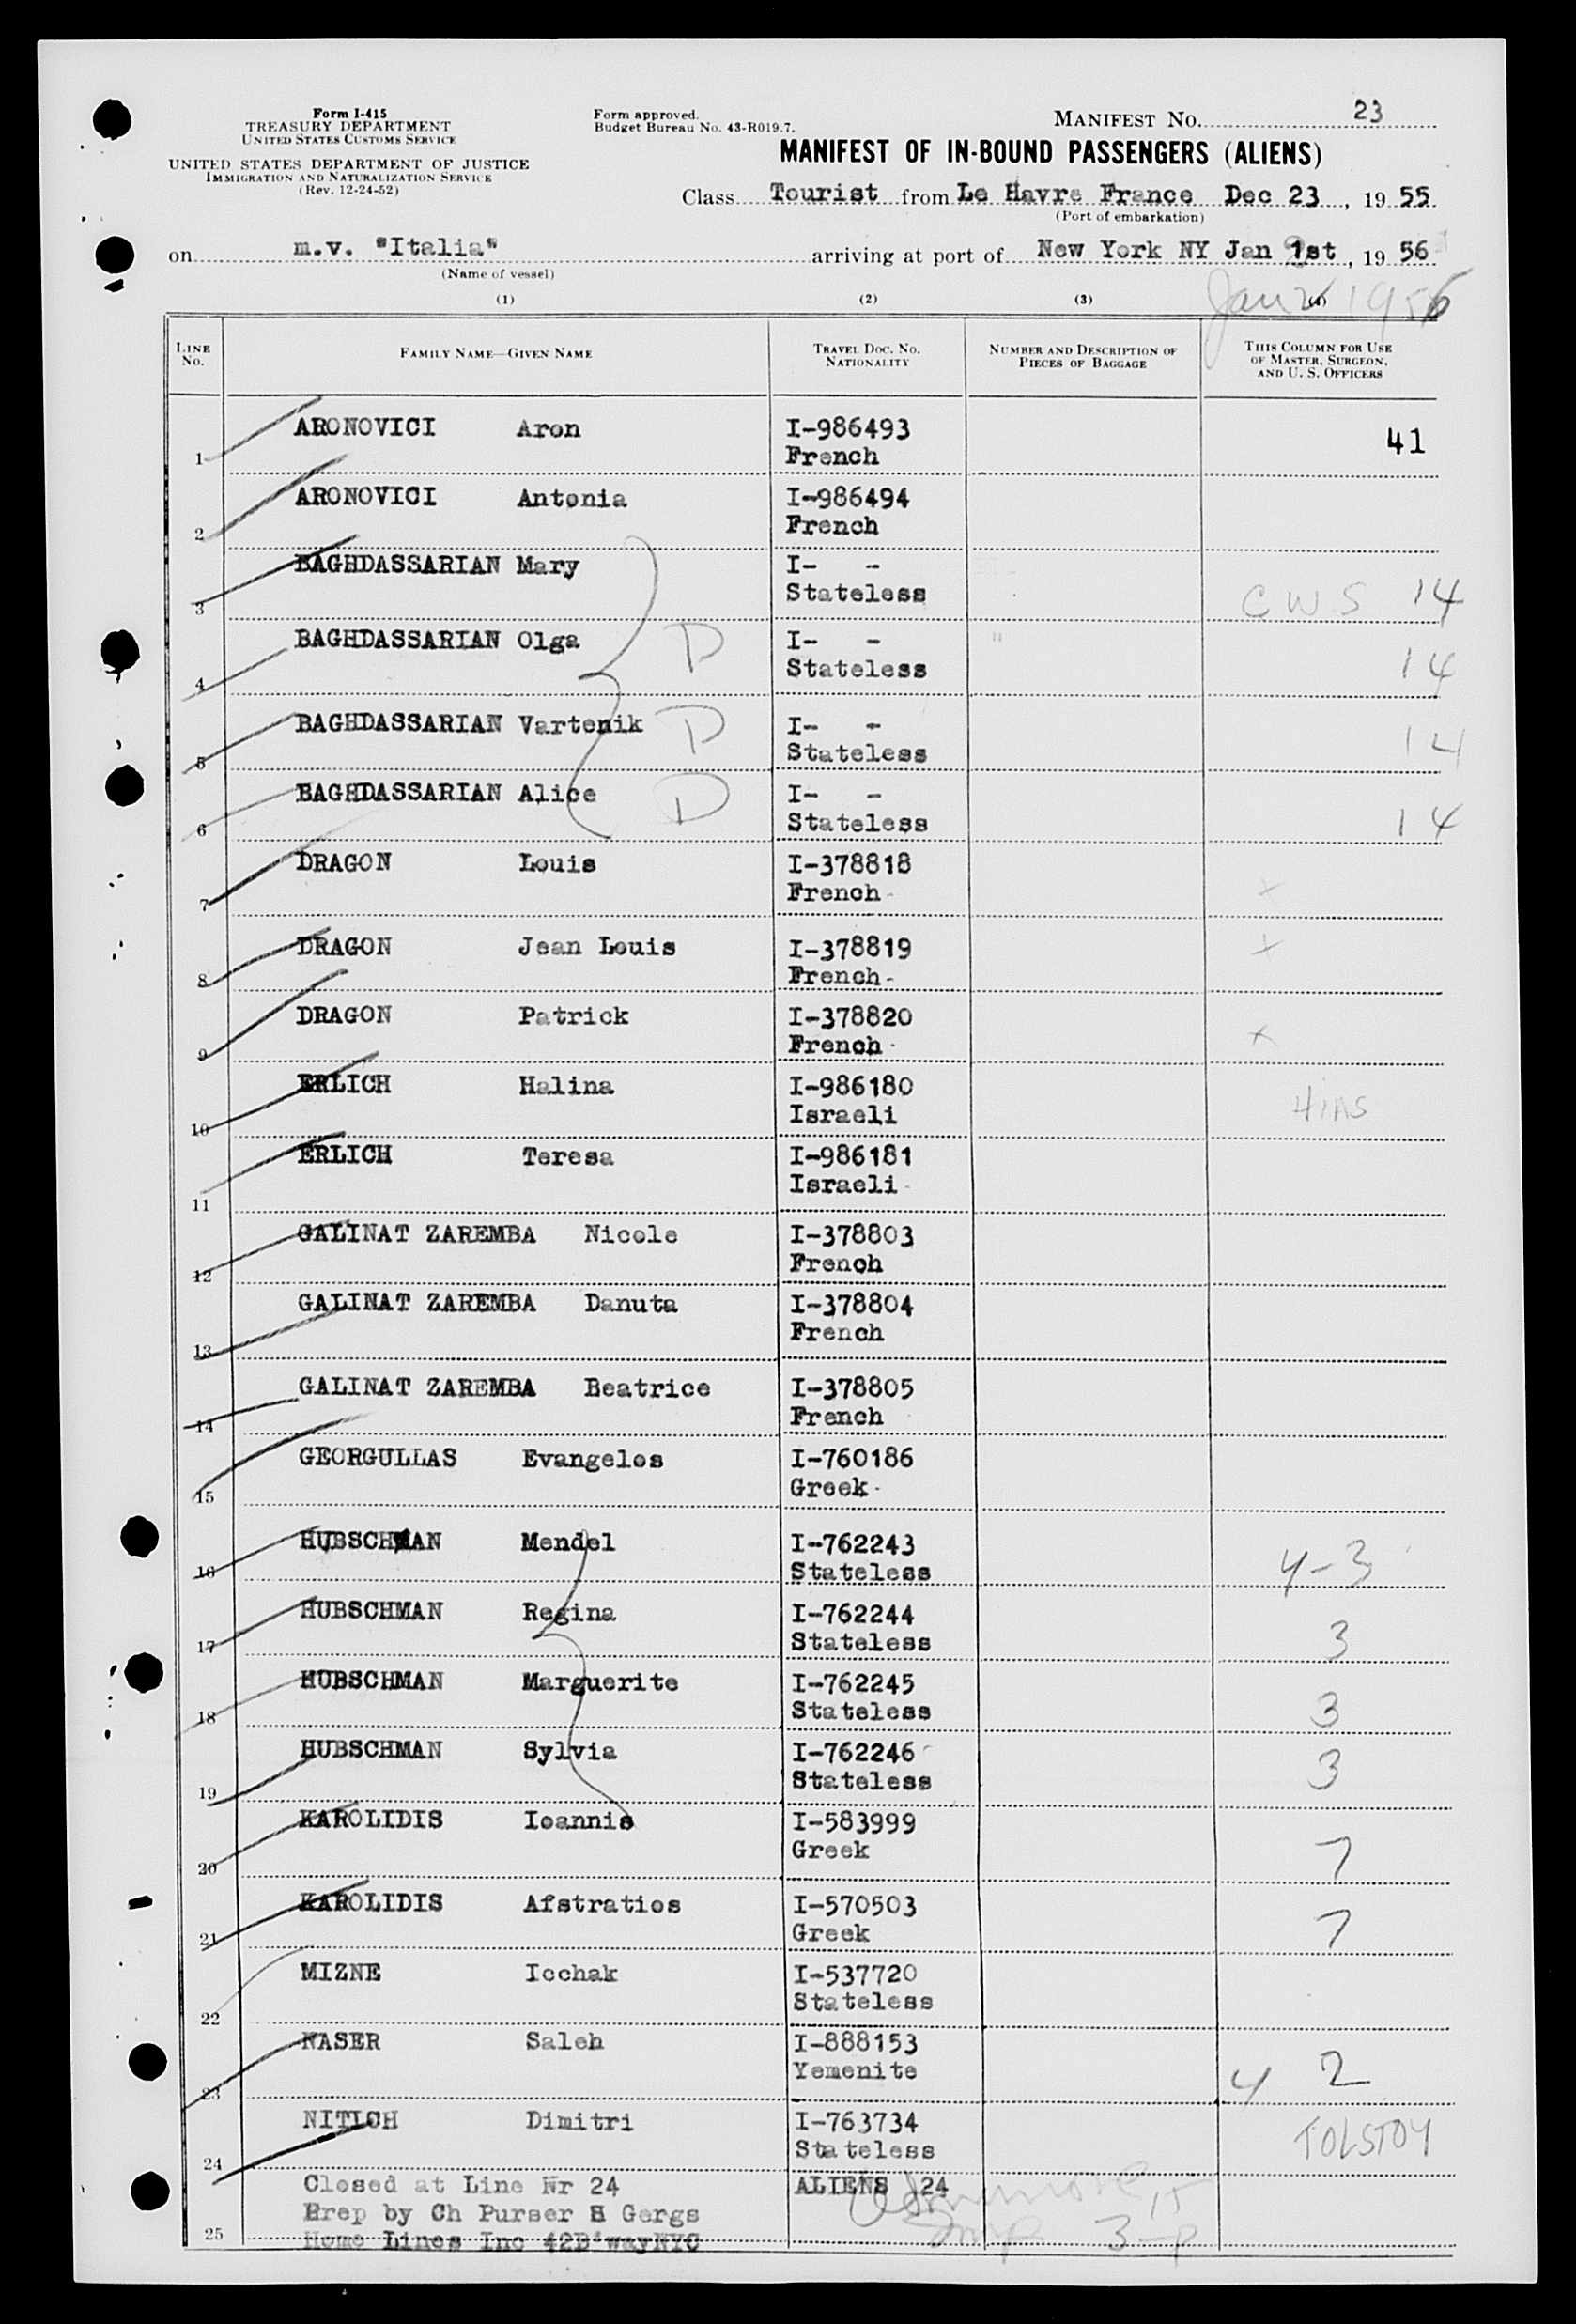 Form I-415
TREASURY DEPARTMENT
UNITED STATES CUSTOMS SERVICE
UNITED STATES DEPARTMENT OF JUSTICE
IMMIGRATION AND NATURALIZATION SERVICE
(Rev. 12-24-52)
Form approved.
Budget Bureau No. 43-R019.7.
MANIFEST NO. 23
MANIFEST OF IN-BOUND PASSENGERS (ALIENS)
Class Tourist from Le Havre France Dec 23, 19 55
(Port of embarkation)
on m.v. "Italia" arriving at port of New York NY Jan 1st, 19 56
(Name of vessel)
Jan 2 1956
(1) (2) (3) (4)
LINE NO. FAMILY NAME—GIVEN NAME TRAVEL DOC. NO. NATIONALITY NUMBER AND DESCRIPTION OF PIECES OF BAGGAGE THIS COLUMN FOR USE OF MASTER, SURGEON, AND U. S. OFFICERS
1 ARONOVICI Aron I-986493 41
French
2 ARONOVICI Antonia I-986494
French
3 BAGHDASSARIAN Mary I- -
Stateless CWS 14
4 BAGHDASSARIAN Olga D I- - "
Stateless 14
5 BAGHDASSARIAN Vartenik D I- -
Stateless 14
6 BAGHDASSARIAN Alice D I- -
Stateless 14
7 DRAGON Louis I-378818
French x
8 DRAGON Jean Louis I-378819 x
French
9 DRAGON Patrick I-378820
French x
10 ERLICH Halina I-986180
Israeli HIAS
11 ERLICH Teresa I-986181
Israeli
12 GALINAT ZAREMBA Nicole I-378803
French
13 GALINAT ZAREMBA Danuta I-378804
French
14 GALINAT ZAREMBA Beatrice I-378805
French
15 GEORGULLAS Evangelos I-760186
Greek
16 HUBSCHMAN Mendel I-762243
Stateless 4-3
17 HUBSCHMAN Regina I-762244
Stateless 3
18 HUBSCHMAN Marguerite I-762245
Stateless 3
19 HUBSCHMAN Sylvia I-762246
Stateless 3
20 KAROLIDIS Ioannis I-583999
Greek 7
21 KAROLIDIS Afstratios I-570503
Greek 7
22 MIZNE Icchak I-537720
Stateless
23 NASER Saleh I-888153
Yemenite 4 2
24 NITICH Dimitri I-763734
Stateless TOLSTOY
Closed at Line Nr 24 ALIENS 24
Prep by Ch Purser H Gergs
25 Home Lines Inc 42B'wayNYC 3-P